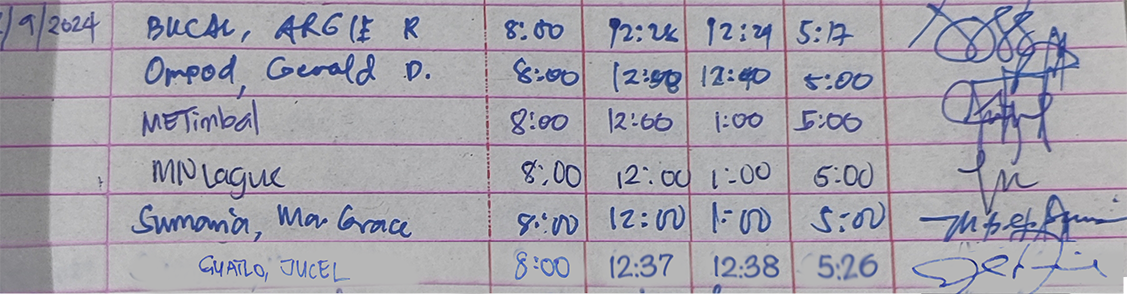 /9/2024 BUCAL, ARGIE R 8:00 12:28 12:29 5:17
Ompod, Gerald D. 8:00 12:40 5:00
METimbal 8:00 12:00 1:00 5:00
MN Lague 8:00 12:00 1:00 5:00
Sumania, Mar Grace 8:00 12:00 1:00 5:00
GUATLO, JUCEL 8:00 12:37 12:38 5:26